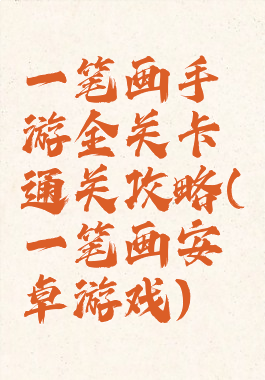 一笔画手
游全关卡
通关攻略(
一笔画安
卓游戏)